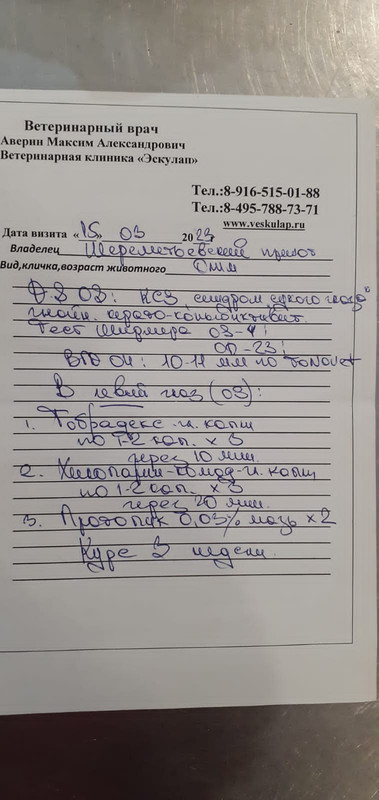 Ветеринарный врач
Аверин Максим Александрович
Ветеринарная клиника «Эскулап»
Тел.:8-916-515-01-88
Тел.:8-495-788-73-71
www.veskulap.ru
Дата визита «15» 03 2023
Владелец Шереметьевский приют
Вид,кличка,возраст животного Эмм
DS OS: КСЗ, синдром сухого глаза"
гнойн. керато-конъюнктивит.
Тест Ширмера OS-4;
OD-23;
ВГД OU: 10-11 мм по TonoVet
В левый глаз (OS):
1. Тобрадекс гл. капли
по 1-2 кап. x 3
через 10 мин.
2. Хилопарин-комод-гл. капли
по 1-2 кап. x 3
через 20 мин.
3. Протопик 0,03% мазь x2
Курс 3 недели.